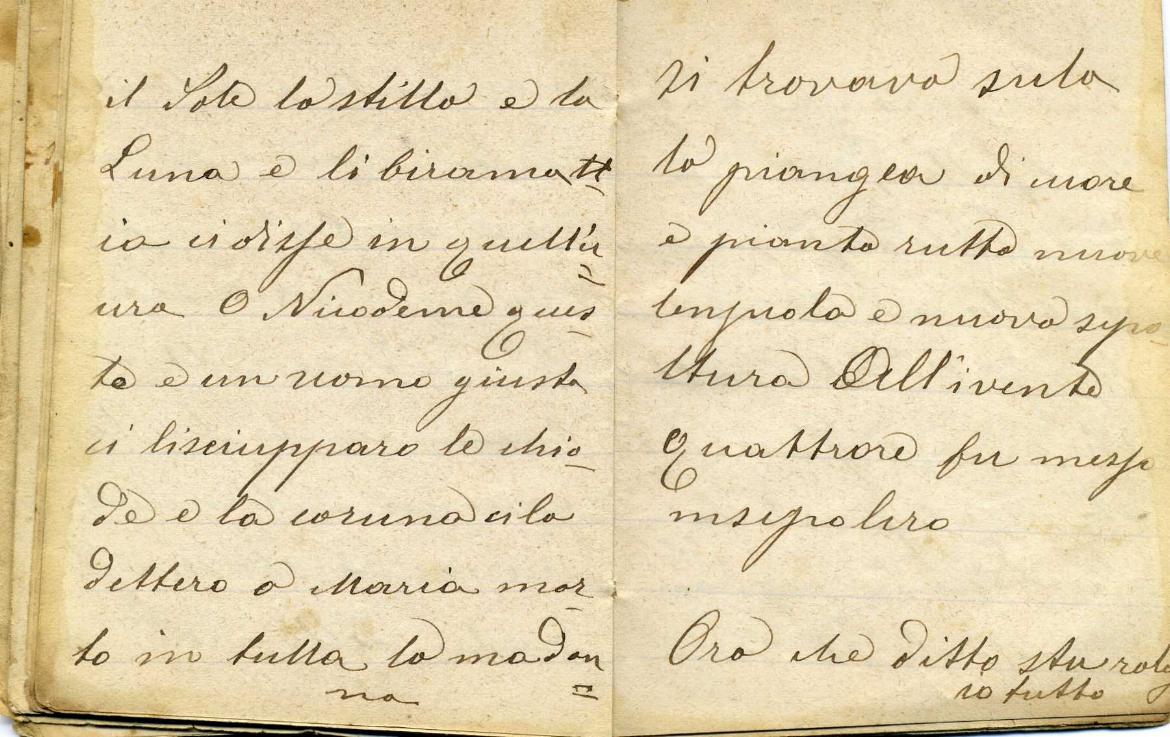 il Sole la stilla e la
Luna e li biramatt
ia ci disse in quell'u
ura O Nicodeme ques
to e un uomo giusto
ci lisciupparo le chio
de e la coruna cila
dettero a Maria mor
to in tutta la madon
na
si trovava sula
la piangea di cuore
e pianto rutto nuove
lenzuola e nuova sepo
ltura All'ivente
quattrore fu messo
insepolcro
Ora che ditto stu rolog
io tutto